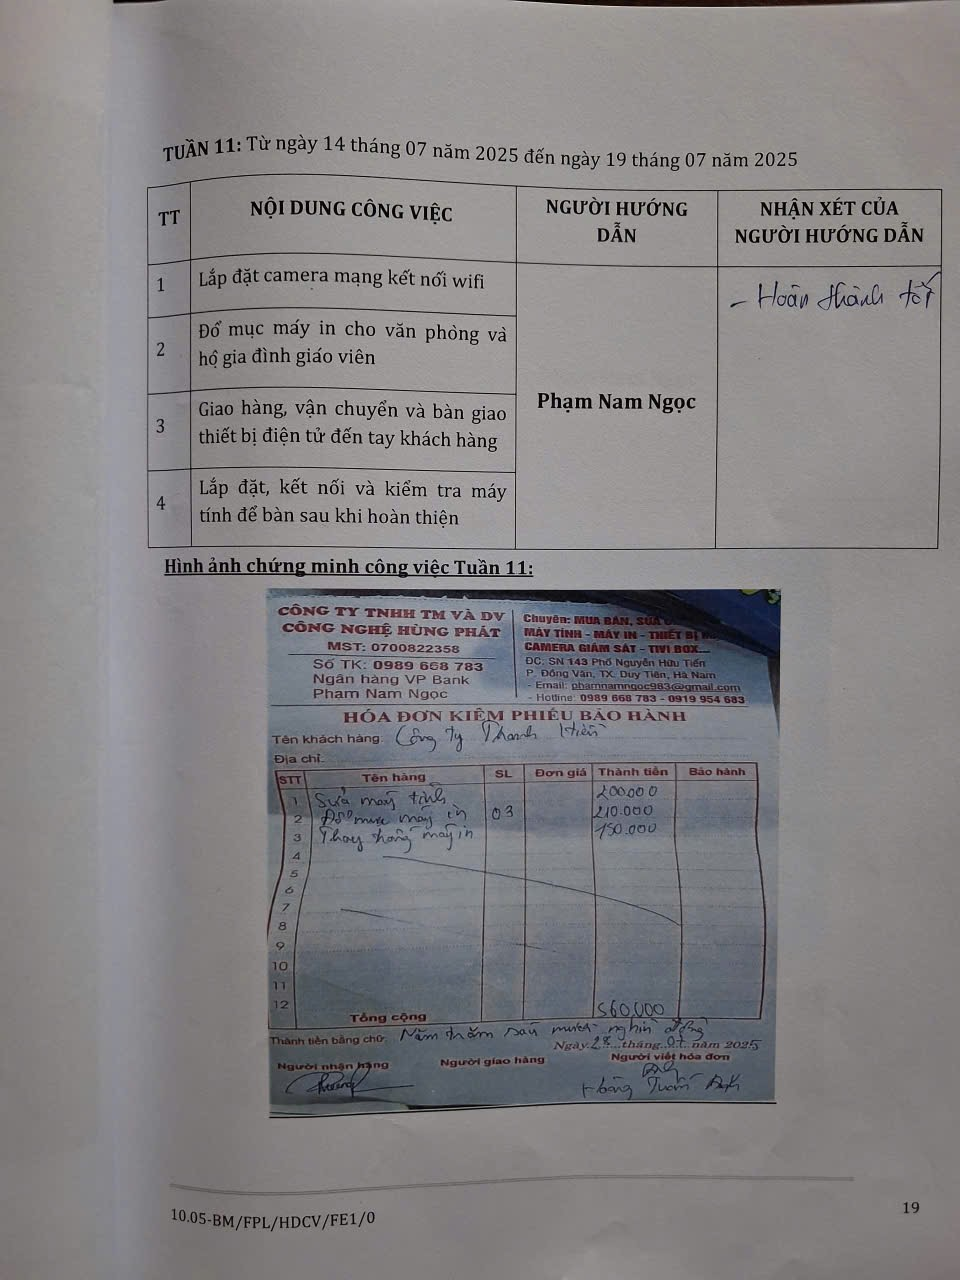 TUẦN 11: Từ ngày 14 tháng 07 năm 2025 đến ngày 19 tháng 07 năm 2025
TT
NỘI DUNG CÔNG VIỆC
NGƯỜI HƯỚNG
DẪN
NHẬN XÉT CỦA
NGƯỜI HƯỚNG DẪN
1
Lắp đặt camera mạng kết nối wifi
2
Đổ mục máy in cho văn phòng và
hộ gia đình giáo viên
3
Giao hàng, vận chuyển và bàn giao
thiết bị điện tử đến tay khách hàng
4
Lắp đặt, kết nối và kiểm tra máy
tính để bàn sau khi hoàn thiện
Phạm Nam Ngọc
- Hoàn thành tốt
Hình ảnh chứng minh công việc Tuần 11:
CÔNG TY TNHH TM VÀ DV
CÔNG NGHỆ HÙNG PHÁT
MST: 0700822358
Số TK: 0989 668 783
Ngân hàng VP Bank
Phạm Nam Ngọc
Chuyên: MUA BÁN, SỬA
MÁY TÍNH - MÁY IN - THIẾT BỊ
CAMERA GIÁM SÁT - TIVI BOX...
ĐC: SN 143 Phố Nguyễn Hữu Tiến
P. Đồng Văn, TX. Duy Tiên, Hà Nam
- Email: phamnamngoc983@gmail.com
- Hotline: 0989 668 783 - 0919 954 683
HÓA ĐƠN KIÊM PHIẾU BẢO HÀNH
Tên khách hàng: Công ty Thanh Hiền
Địa chỉ:
STT Tên hàng SL Đơn giá Thành tiền Bảo hành
1 Sửa máy tính 200.000
2 Đổ mực máy in 03 210.000
3 Thay trống máy in 150.000
4
5
6
7
8
9
10
11
12
Tổng cộng 560.000
Thành tiền bằng chữ: Năm trăm sáu mươi nghìn đồng
Ngày 28 tháng 07 năm 2025
Người nhận hàng Người giao hàng Người viết hóa đơn
Hoàng Tuấn Anh
10.05-BM/FPL/HDCV/FE1/0
19